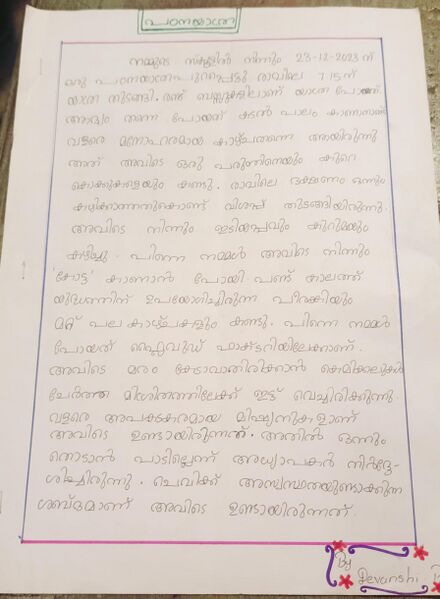 പഠനയാത്ര
നമ്മുടെ സ്കൂളിൽ നിന്നും 23-12-2023 ന്
ഒരു പഠനയാത്ര പുറപ്പെട്ടു രാവിലെ 7 15 ന്
യാത്ര തുടങ്ങി. രണ്ട് ബസ്സുകളിലാണ് യാത്ര പോയത്.
ആദ്യം തന്നെ പോയത് കടൽ പാലം കാണാനാണ്
വളരെ മനോഹരമായ കാഴ്ചതന്നെ ആയിരുന്നു
അത് അവിടെ ഒരു പരുന്തിനെയും കുറെ
കൊക്കുകളെയും കണ്ടു. രാവിലെ ഭക്ഷണം ഒന്നും
കഴിക്കാത്തതുകൊണ്ട് വിശപ്പ് തുടങ്ങിയിരുന്നു.
അവിടെ നിന്നും ഇടിയപ്പവും കുറുമയും
കഴിച്ചു. പിന്നെ നമ്മൾ അവിടെ നിന്നും
'കോട്ട' കാണാൻ പോയി. പണ്ട് കാലത്ത്
യുദ്ധത്തിന് ഉപയോഗിച്ചിരുന്ന പീരങ്കിയും
മറ്റ് പല കാഴ്ചകളും കണ്ടു. പിന്നെ നമ്മൾ
പോയത് പ്ലൈവുഡ് ഫാക്ടറിയിലേക്കാണ്.
അവിടെ മരം കേടാവാതിരിക്കാൻ കെമിക്കലുകൾ
ചേർത്ത മിശ്രിതത്തിലേക്ക് ഇട്ട് വെച്ചിരിക്കുന്നു.
വളരെ അപകടകരമായ മിഷ്യനുകളാണ്
അവിടെ ഉണ്ടായിരുന്നത്. അതിൽ ഒന്നും
തൊടാൻ പാടില്ലെന്ന് അധ്യാപകർ നിർദ്ദേ-
ശിച്ചിരുന്നു. ചെവിക്ക് അസ്വസ്ഥതയുണ്ടാക്കുന്ന
ശബ്ദമാണ് അവിടെ ഉണ്ടായിരുന്നത്.
By
Devanshi